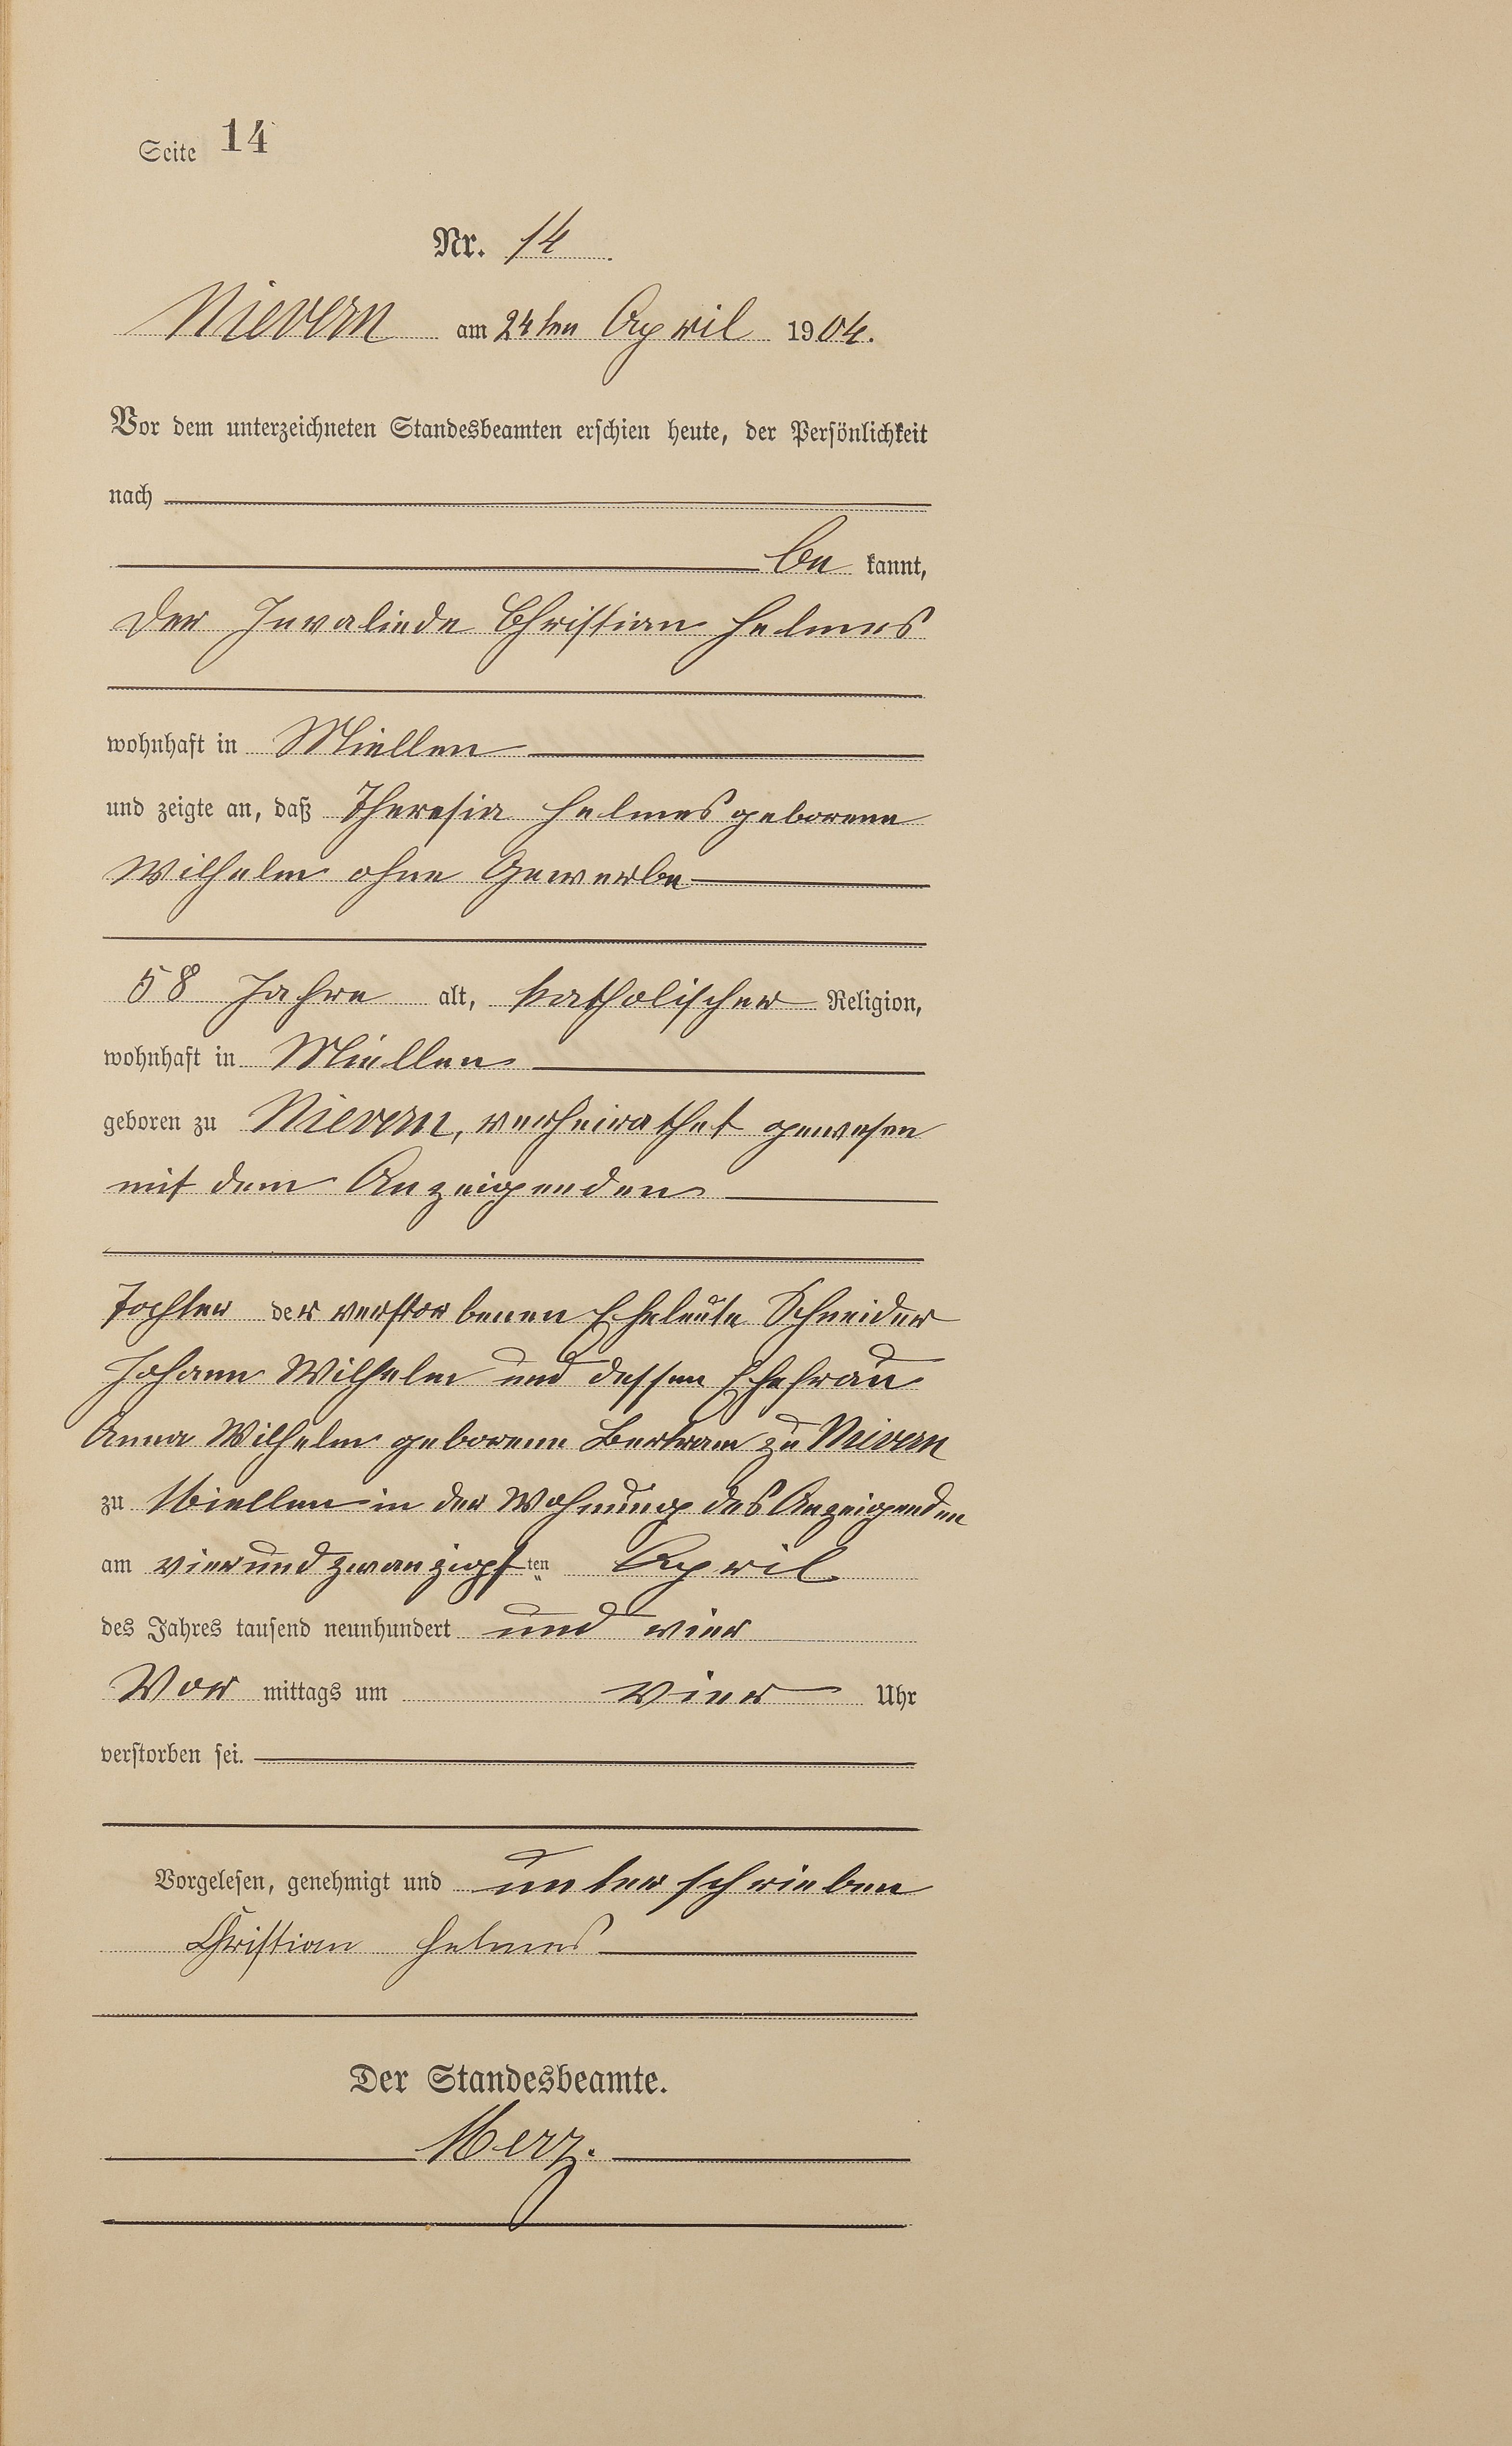 Seite 14
Nr. 14
Nievern am 24ten April 1904.
Vor dem unterzeichneten Standesbeamten erschien heute, der Persönlichkeit
nach
be kannt,
der Invaliede Christian Helmes
wohnhaft in Miellen
und zeigte an, daß Theresia Helmes geborene
Wilhelm ohne Gewerbe
58 Jahre alt, katholischer Religion,
wohnhaft in Miellen
geboren zu Nievern, verheirathet gewesen
mit dem Anzeigenden
Tochter der verstorbenen Eheleute Schneider
Johann Wilhelm und dessen Ehefrau
Anna Wilhelm geborene Bertram zu Nivern
zu Miellen in der Wohnung des Anzeigenden
am vierundzwanzigsten April
des Jahres tausend neunhundert und vier
Vor mittags um vier Uhr
verstorben sei.
Vorgelesen, genehmigt und unterschrieben
Christian Helmes
Der Standesbeamte.
Merz.